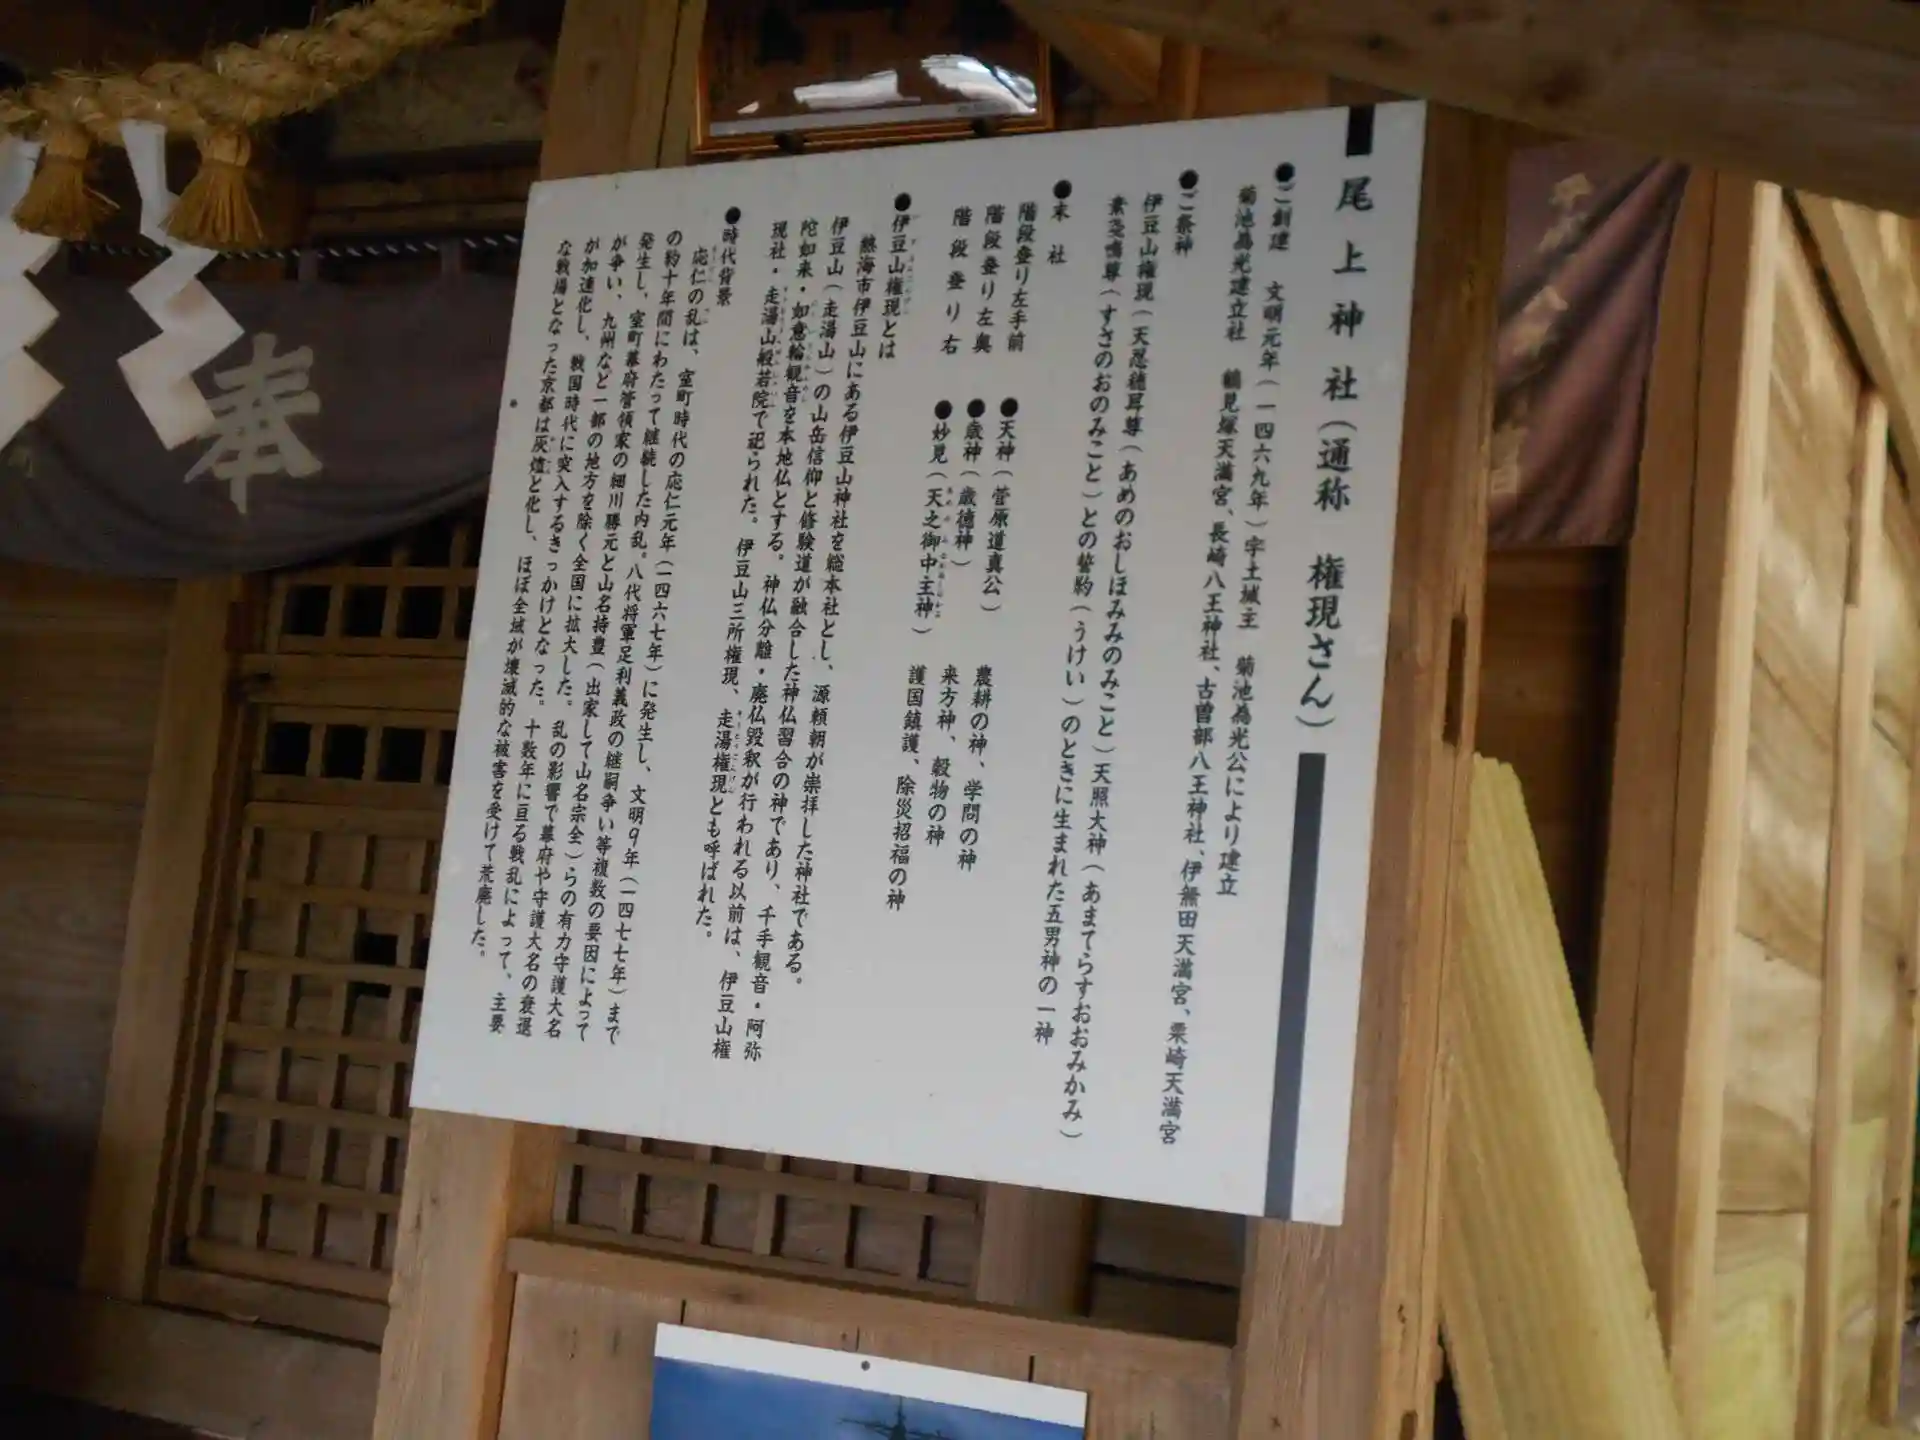 尾上神社(通称 権現さん)
●ご創建 文明元年(一四六九年)宇土城主 菊池為光公により建立
菊池為光建立社 鶴見塚天満宮、長崎八王神社、古曽部八王神社、伊無田天満宮、栗崎天満宮
●ご祭神
伊豆山権現(天忍穂耳尊(あめのおしほみみのみこと)天照大神(あまてらすおおみかみ)
素戔嗚尊(すさのおのみこと)との誓約(うけい)のときに生まれた五男神の一神
●末社
階段登り左手前 ●天神(菅原道真公) 農耕の神、学問の神
階段登り左奥 ●歳神(歳徳神) 来方神、穀物の神
階段登り右 ●妙見(天之御中主神) 護国鎮護、除災招福の神
●伊豆山権現とは
熱海市伊豆山にある伊豆山神社を総本社とし、源頼朝が崇拝した神社である。
伊豆山(走湯山)の山岳信仰と修験道が融合した神仏習合の神であり、千手観音・阿弥
陀如来・如意輪観音を本地仏とする。神仏分離・廃仏毀釈が行われる以前は、伊豆山権
現社・走湯山般若院で祀られた。伊豆山三所権現、走湯権現とも呼ばれた。
●時代背景
応仁の乱は、室町時代の応仁元年(一四六七年)に発生し、文明9年(一四七七年)まで
の約十年間にわたって継続した内乱。八代将軍足利義政の継嗣争い等複数の要因によって
発生し、室町幕府管領家の細川勝元と山名持豊(出家して山名宗全)らの有力守護大名
が争い、九州など一部の地方を除く全国に拡大した。乱の影響で幕府や守護大名の衰退
が加速化し、戦国時代に突入するきっかけとなった。十数年に亘る戦乱によって、主要
な戦場となった京都は灰燼と化し、ほぼ全域が壊滅的な被害を受けて荒廃した。
奉